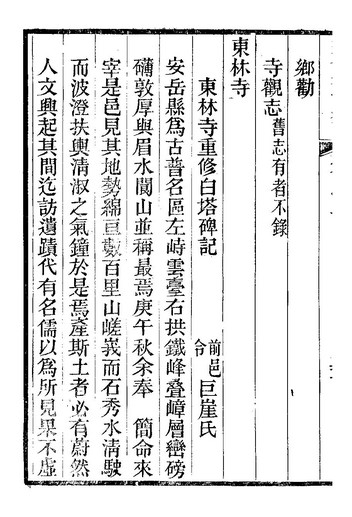 鄉勸
寺觀志舊志有者不錄
東林寺
東林寺重修白塔碑記 前邑令 巨崖氏
安岳縣爲古普名區左峙雲臺右拱鐵峰叠嶂層巒磅
礴敦厚與眉水閬山並稱最焉庚午秋余奉 簡命來
宰是邑見其地勢綿亘數百里山嵯峩而石秀水清駛
而波澄扶輿清淑之氣鐘於是焉產斯土者必有蔚然
人文興起其間迄訪遺蹟代有名儒以爲所見果不虛